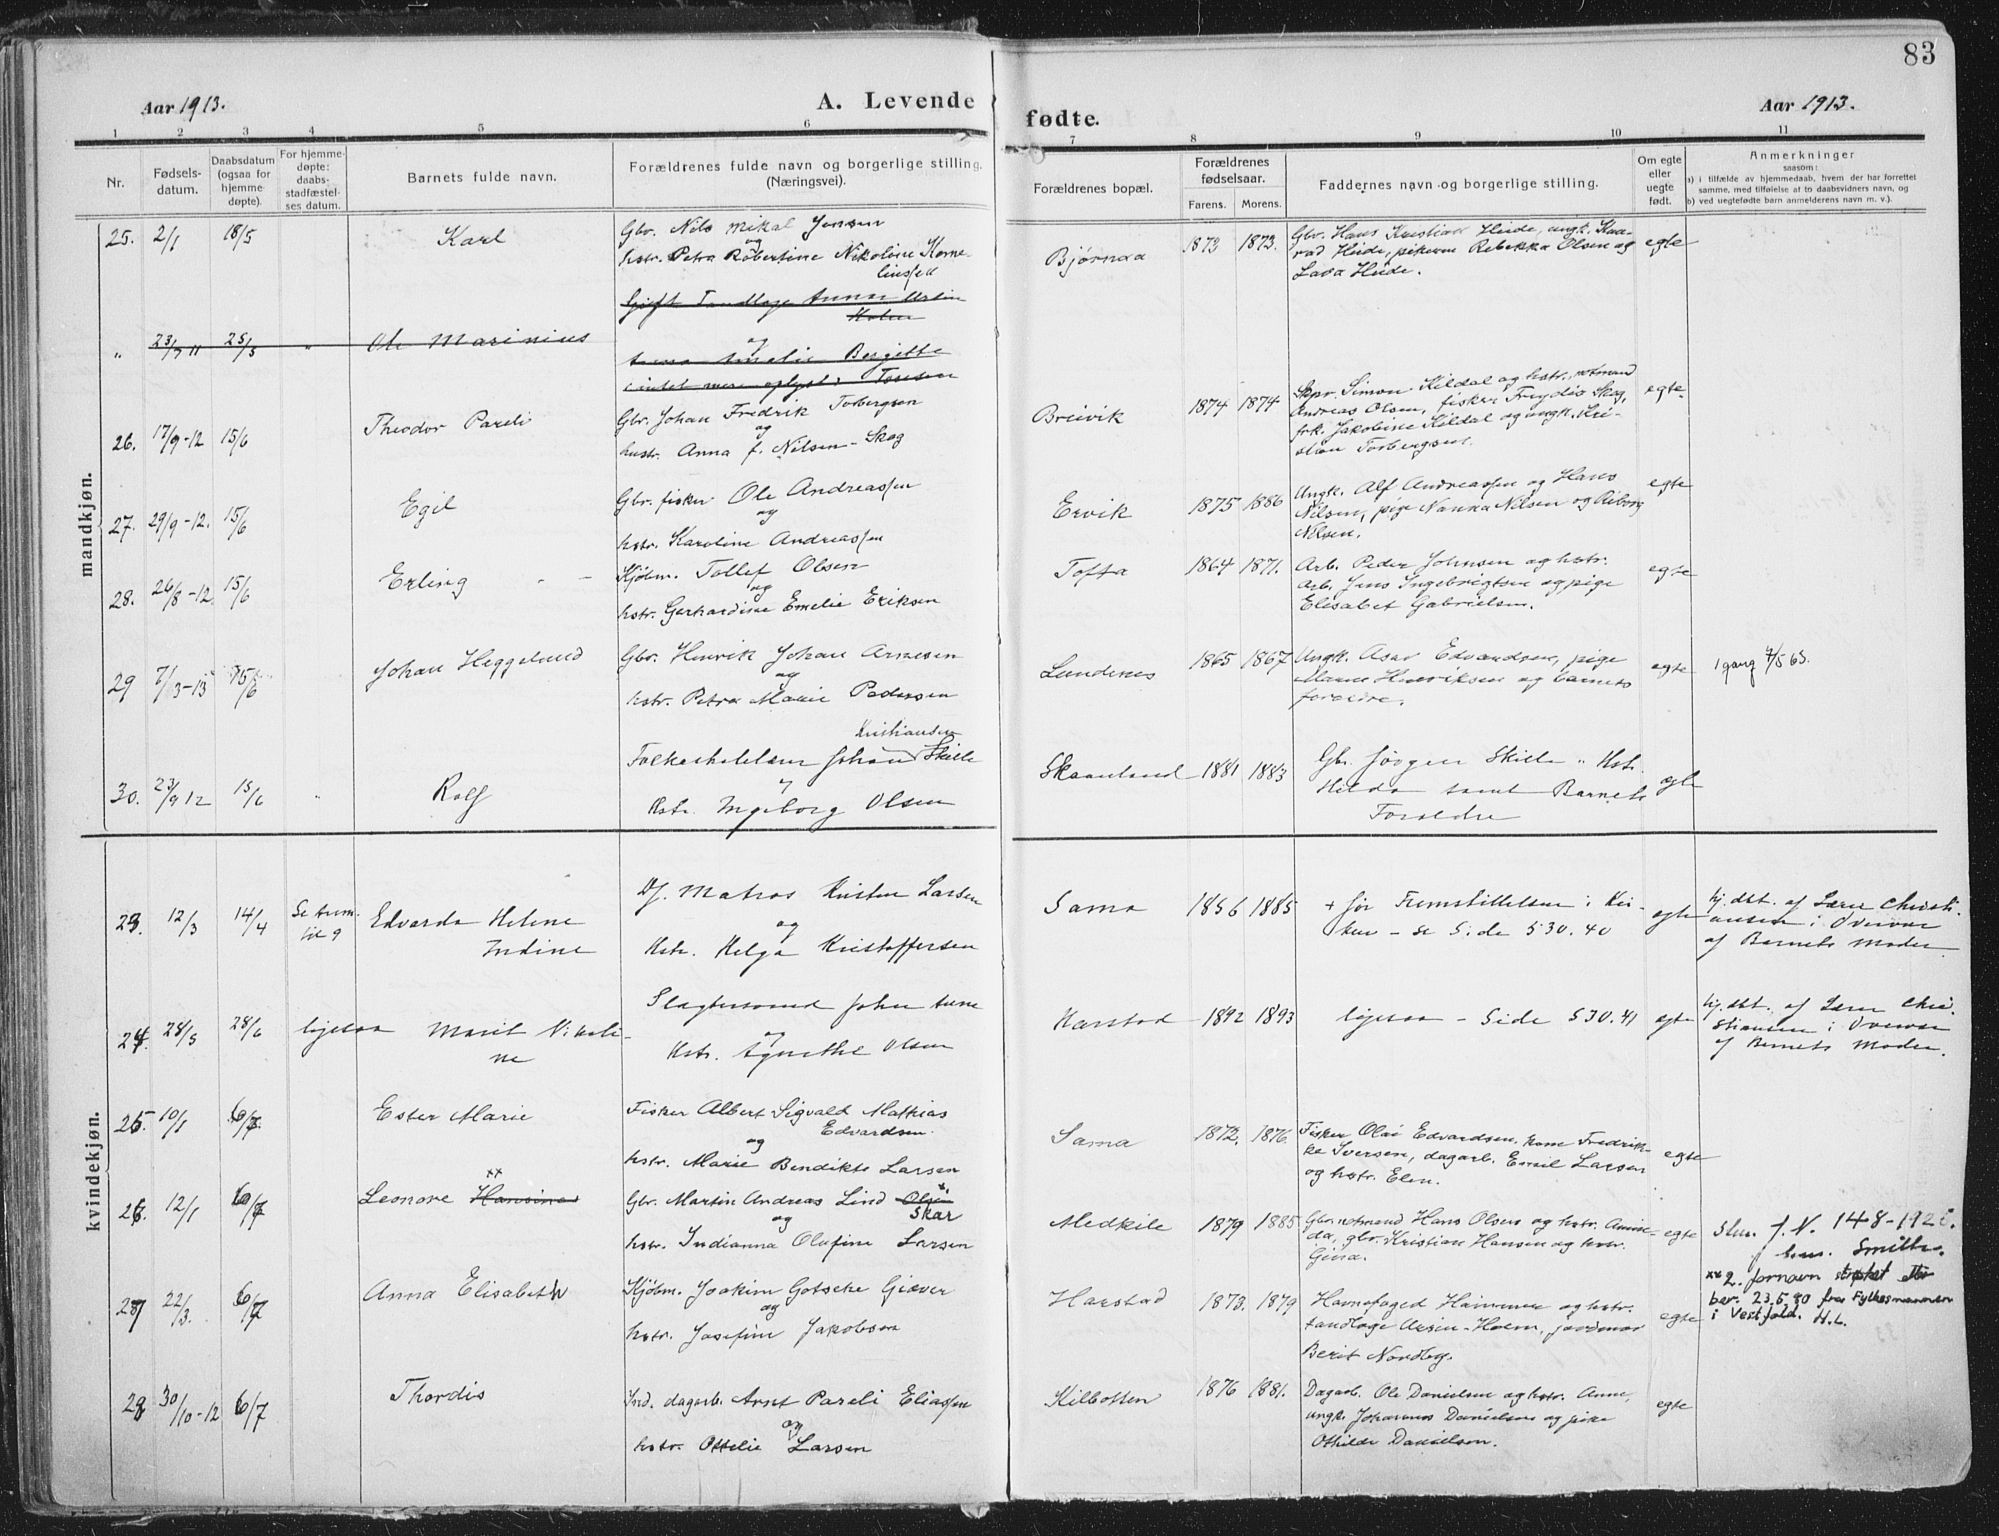 83
Aar 1913.
A. Levende
fødte.
Aar 1913.
1 2 3 4 5 6 7 8 9 10 11
Nr.
Fødsels-
datum.
Daabsdatum
(ogsaa for
hjemme-
døpte).
For hjemme-
døpte:
daabs-
stadfæstel-
ses datum.
Barnets fulde navn.
Forældrenes fulde navn og borgerlige stilling.
(Næringsvei).
Forældrenes bopæl.
Forældrenes
fødselsaar.
Farens. Morens.
Faddernes navn og borgerlige stilling.
Om egte
eller
uegte
født.
Anmerkninger
saasom:
a) i tilfælde av hjemmedaab, hvem der har forrettet
samme, med tilføielse af to daabsvidners navn, og
b) ved uegtefødte barn anmelderens navn m. v.).
mandkjøn.
25. 2/1 18/5 Karl
Gbr. Nils Mikal Jensen
og
hstr. Petra Robertine Nikoline Korne-
liussen
Bjørnaa 1873 1873.
Gbr. Hans Kristian Heide, ungk. Kaa-
rad Heide, pikerne Rebekka Olsen og
Lava Heide.
egte
" 23/ 11 25/5 " Ole Marinius
Gift Tandlæge Aunar Ursin
Holm
og
Anna Amalie Bergitte
(intet mere oplyst) Toresen
26. 17/9-12 15/6 Theodor Pareli
Gbr. Johan Fredrik Torbergsen
og
hustr. Anna f. Nilsen-Skog
Breivik 1874 1874
Skpr. Simon Kildal og hstr., notmand
Andreas Olsen, fisker Frejdis Skog,
frk. Jakobine Kildal og ungk. Kri-
stian Torbergsen.
egte
27. 29/9-12. 15/6 Egil
Gbr. fisker Ole Andreassen
og
hstr. Karoline Andreassen
Ervik 1875 1886
Ungk. Alf Andreassen og Hans
Nilsen, pige Nanna Nilsen og Riborg
Nilsen.
egte
28. 26/8-12. 15/6 Erling
Kjøbm. Tollef Olsen
og
hstr. Gerhardine Emelie Eriksen
Tofta 1864 1871.
Arb. Peder Johnsen og hstr.
arb. Jens Ingebrigtsen og pige
Elisabet Gabrielsen.
egte
29 7/3-13 15/6 Johan Heggelund
Gbr. Henrik Johan Arnesen
og
hstr. Petra Marie Pedersen
Lundenes 1865 1867
Ungk. Asar Edvardsen, pige
Marie Henriksen og barnets
foreldre.
egte
1 gang 4/5 63.
30. 23/9 12 15/6 " Rolf
Kristiansen
Folkeskolelærer Johan Skille
og
Hstr. Ingeborg Olsen
Skaanland 1881 1883
Gbr. Jørgen Skille " Hstr.
Helda samt Barnets
Foreldre
egte
kvindekjøn.
23. 12/3 14/4 Se Anm.
til 9
Edvarda Helene
Indine
Df. Matros Kristen Larsen
og
Hstr. Helga Kristoffersen
Sama 1856 1885
+ før Fremstillelsen i Kir-
ken - se Side 530.40
egte
hj. dbt. af Lærer Christi-
ansen i Overvær
af Barnets Moder
24. 28/5 28/6 ligesaa Marit Nikoli-
ne
Slagtersvend John Aune
og
Hstr. Agnethe Olsen
Harstad 1892 1893
ligesaa - Side 530.41
egte
hj. dbt. af Lærer Chri-
stiansen i Overvær
af Barnets Moder.
25. 10/1 6/7. Ester Marie
Fisker Albert Sigvald Mathias
Edvardsen.
og
hstr. Marie Bendikte Larsen
Sama 1872. 1876.
Fisker Olai Edvardsen, kone Fredrik-
ke Iversen, dagarb. Emil Larsen
og hstr. Elen.
egte
26. 12/1 6/7 Leonore Hansine xx
Gbr. Martin Andreas Lind Olsen
Skar
og
hstr. Indianna Olufine Larsen
Medkile 1879 1885
Gbr. notmand Hans Olsen og hstr. Amin-
da, gbr. Kristian Hansen og hstr.
Gina.
egte
J.N. 148-192
xx 2. fornavn strøket etter
ber. 23.5.80 fra Fylkesmannen
i Vestfold. H.L.
27 22/3. 6/7 Anna Elisabeth
Kjøbm. Joakim Gotsche Giæver
og
hstr. Josefine Jakobsen
Harstad 1873. 1879
Havnefoged Hammer og hstr.
tandlæge Ursin-Holm, jordmor
Berit Nordby.
egte
28 30/10-12 6/7 Thordis
Ind. dagarb. Arnt Pareli Eliassen
og
hstr. Ottelie Larsen
Kilbotten 1876 1881.
Dagarb. Ole Danielsen og hstr. Anne,
ungk. Johannes Danielsen og pike
Othilde Danielsen.
egte